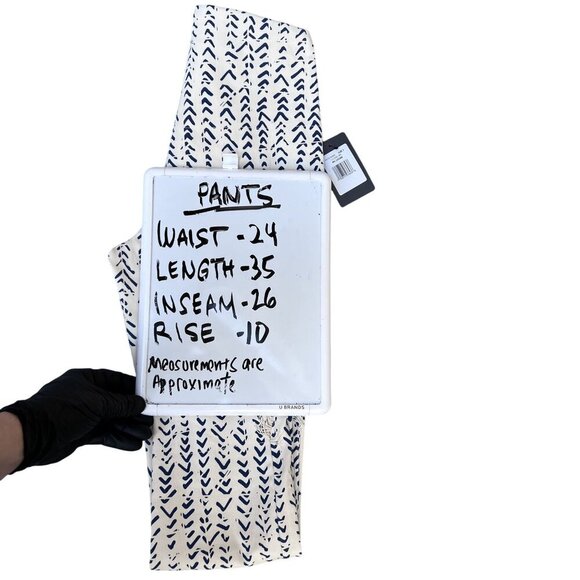 PANTS
WAIST - 24
LENGTH - 35
INSEAM - 26
RISE - 10
Measurements are
Approximate
U BRANDS